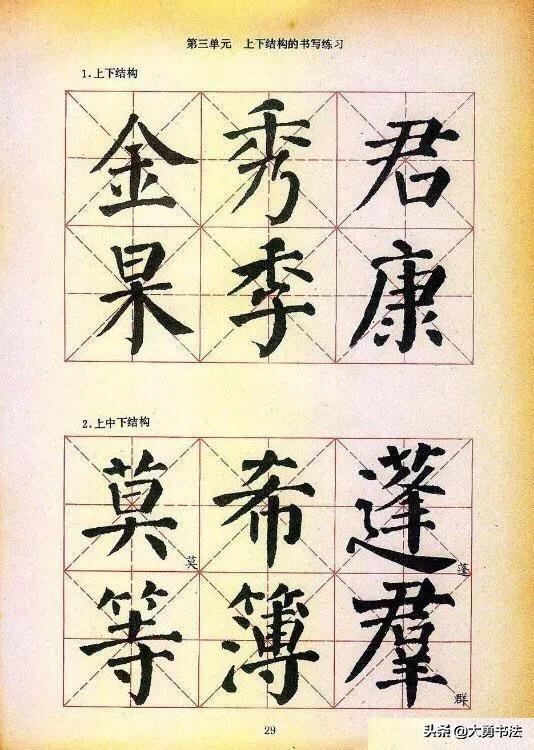 第三单元 上下结构的书写练习
1.上下结构
金秀君
果季康
2.上中下结构
莫希蓬
莫 蓬
等簿羣
群
29
头条@大勇书法